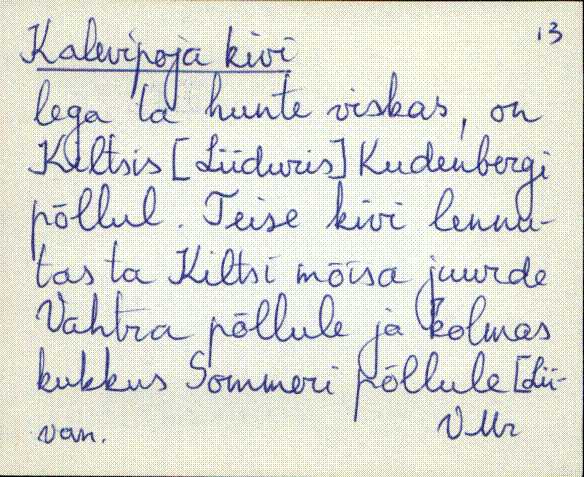 13
Kalevipoja kivi
lega ta hunte viskas, on
Kiltsis [Liiduris] Kudenbergi
põllul. Teise kivi lennu-
tas ta Kiltsi mõisa juurde
Vahtra põllule ja kolmas
kukkus Sommeri põllule [Lii-
van. VMr